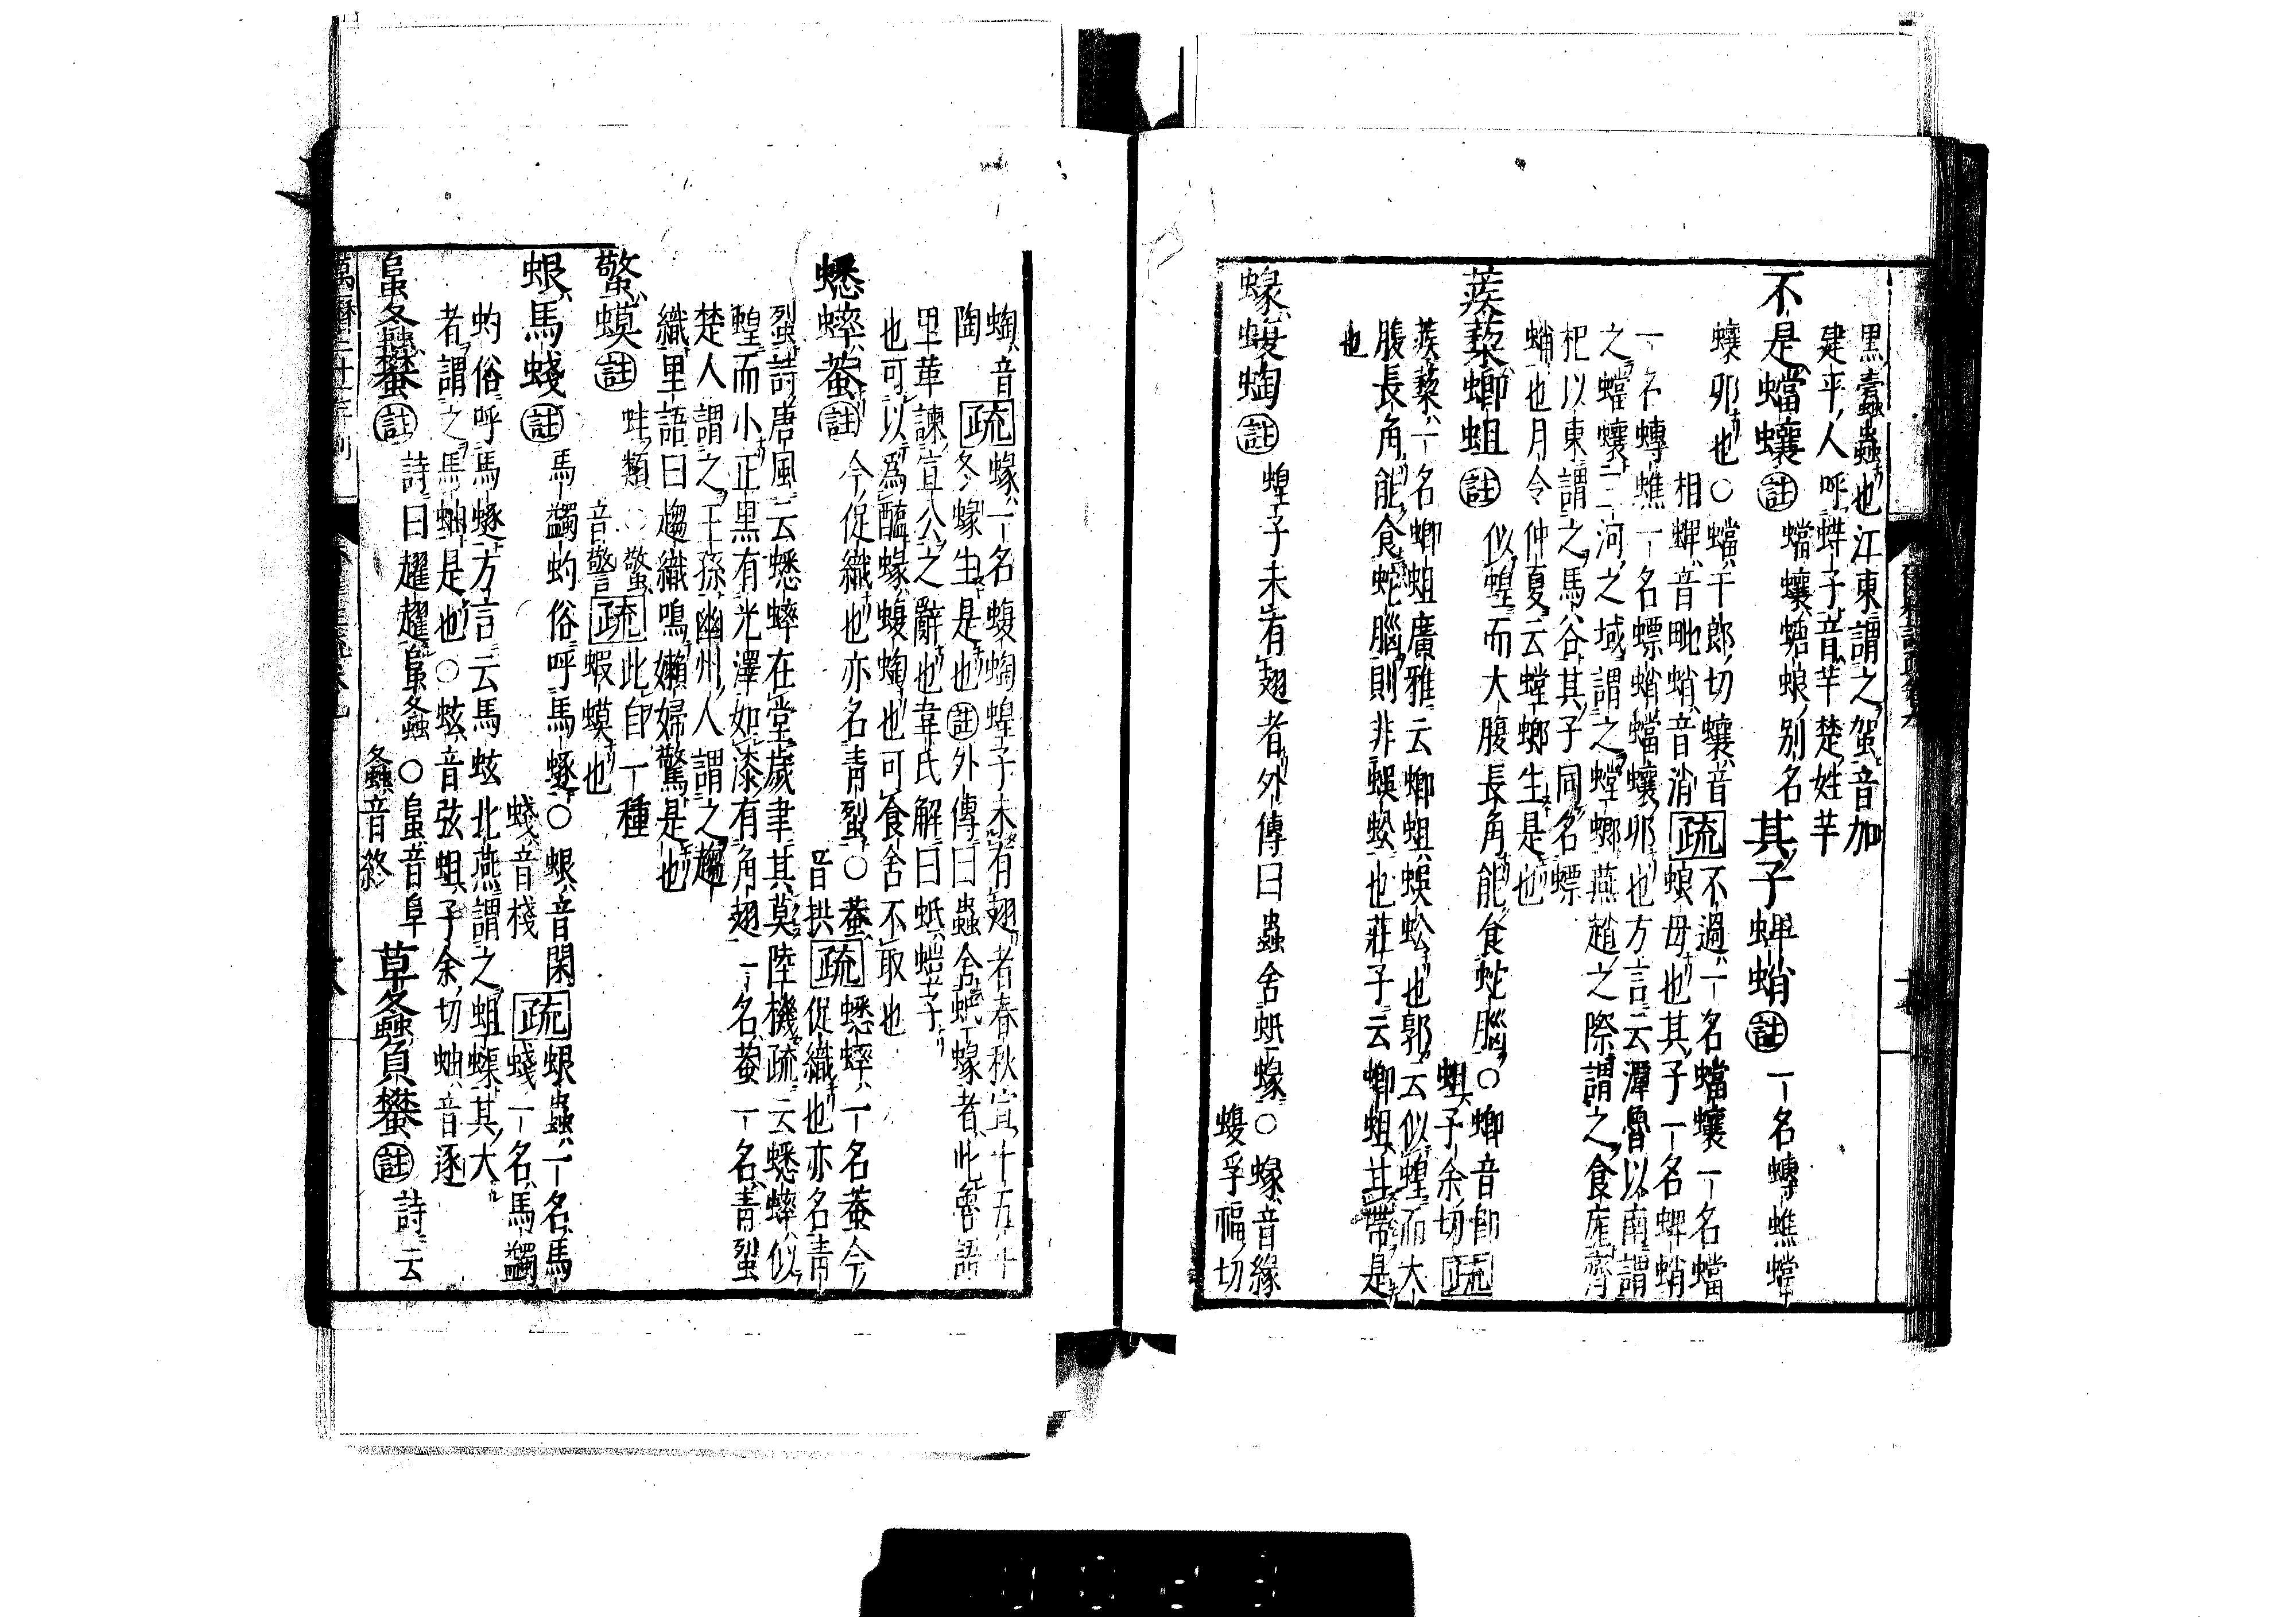 黒蠹蟲也江東謂之䖟音加
建平人呼蛘子音芊楚姓芊
不過蟷蠰註蟷蠰螗蜋別名其子蜱蛸註一名䗚蟭蟷
蠰卵也○蟷丁郎切蠰音
相蜱音毗蛸音消疏不過一名蟷蠰一名蟷
蜋母也其子一名蜱蛸
一名䗚蟭一名螵蛸蟷蠰卵也方言云潭魯以南謂
之蟷蠰三河之域謂之螳螂燕趙之際謂之食庬齊
杞以東謂之馬谷其子同名螵
蛸也月令仲夏云螳螂生是也
蒺蔾蝍蛆註似蝗而大腹長角能食蛇腦○蝍音即
蛆子余切疏
蒺蔾一名蝍蛆廣雅云蝍蛆蜈蚣也郭云似蝗而大
腹長角能食蛇腦則非蜈蚣也莊子云蝍蛆甘帶是
也
蝝蝮蜪註蝗子未有翅者外傳曰蟲舍蚳蝝○蝝音緣
蝮孚福切
蜪音
陶疏蝝一名蝮蜪蝗子未有翅者春秋宣十五年
冬蝝生是也註外傳曰蟲舍蚳蝝者此魯語
里革諫宣公之辭也韋氏解曰蚳螘子
也可以爲醢蝝蝮蜪也可食舍不取也
蟋蟀蛬註今促織也亦名青𧊿○蛬
音拱疏蟋蟀一名蛬今
促織也亦名青
𧊿詩唐風云蟋蟀在堂歲聿其莫陸機疏云蟋蟀似
蝗而小正黒有光澤如漆有角翅一名蛬一名青𧊿
楚人謂之王孫幽州人謂之趨
織里語曰趨織鳴嬾婦驚是也
螫蟆註蛙類○螫
音警疏此自一種
蝦蟆也
蛝馬䗃註馬蠲蚐俗呼馬蠲○蛝音閑
䗃音棧疏蛝蟲一名馬
䗃一名馬蠲
蚐俗呼馬蠲方言云馬蚿北燕謂之蛆蟝其大
者謂之馬蚰是也○蚿音弦蛆子余切蚰音逐
𧒂螽蠜註詩曰趯趯𧒂螽○𧒂音阜
螽音終草螽負蠜註詩云